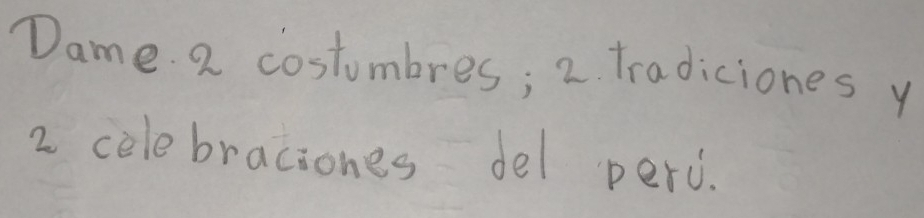 Dame. 2 costumbres; 2. Tradiciones y
2 celebraciones del perú.